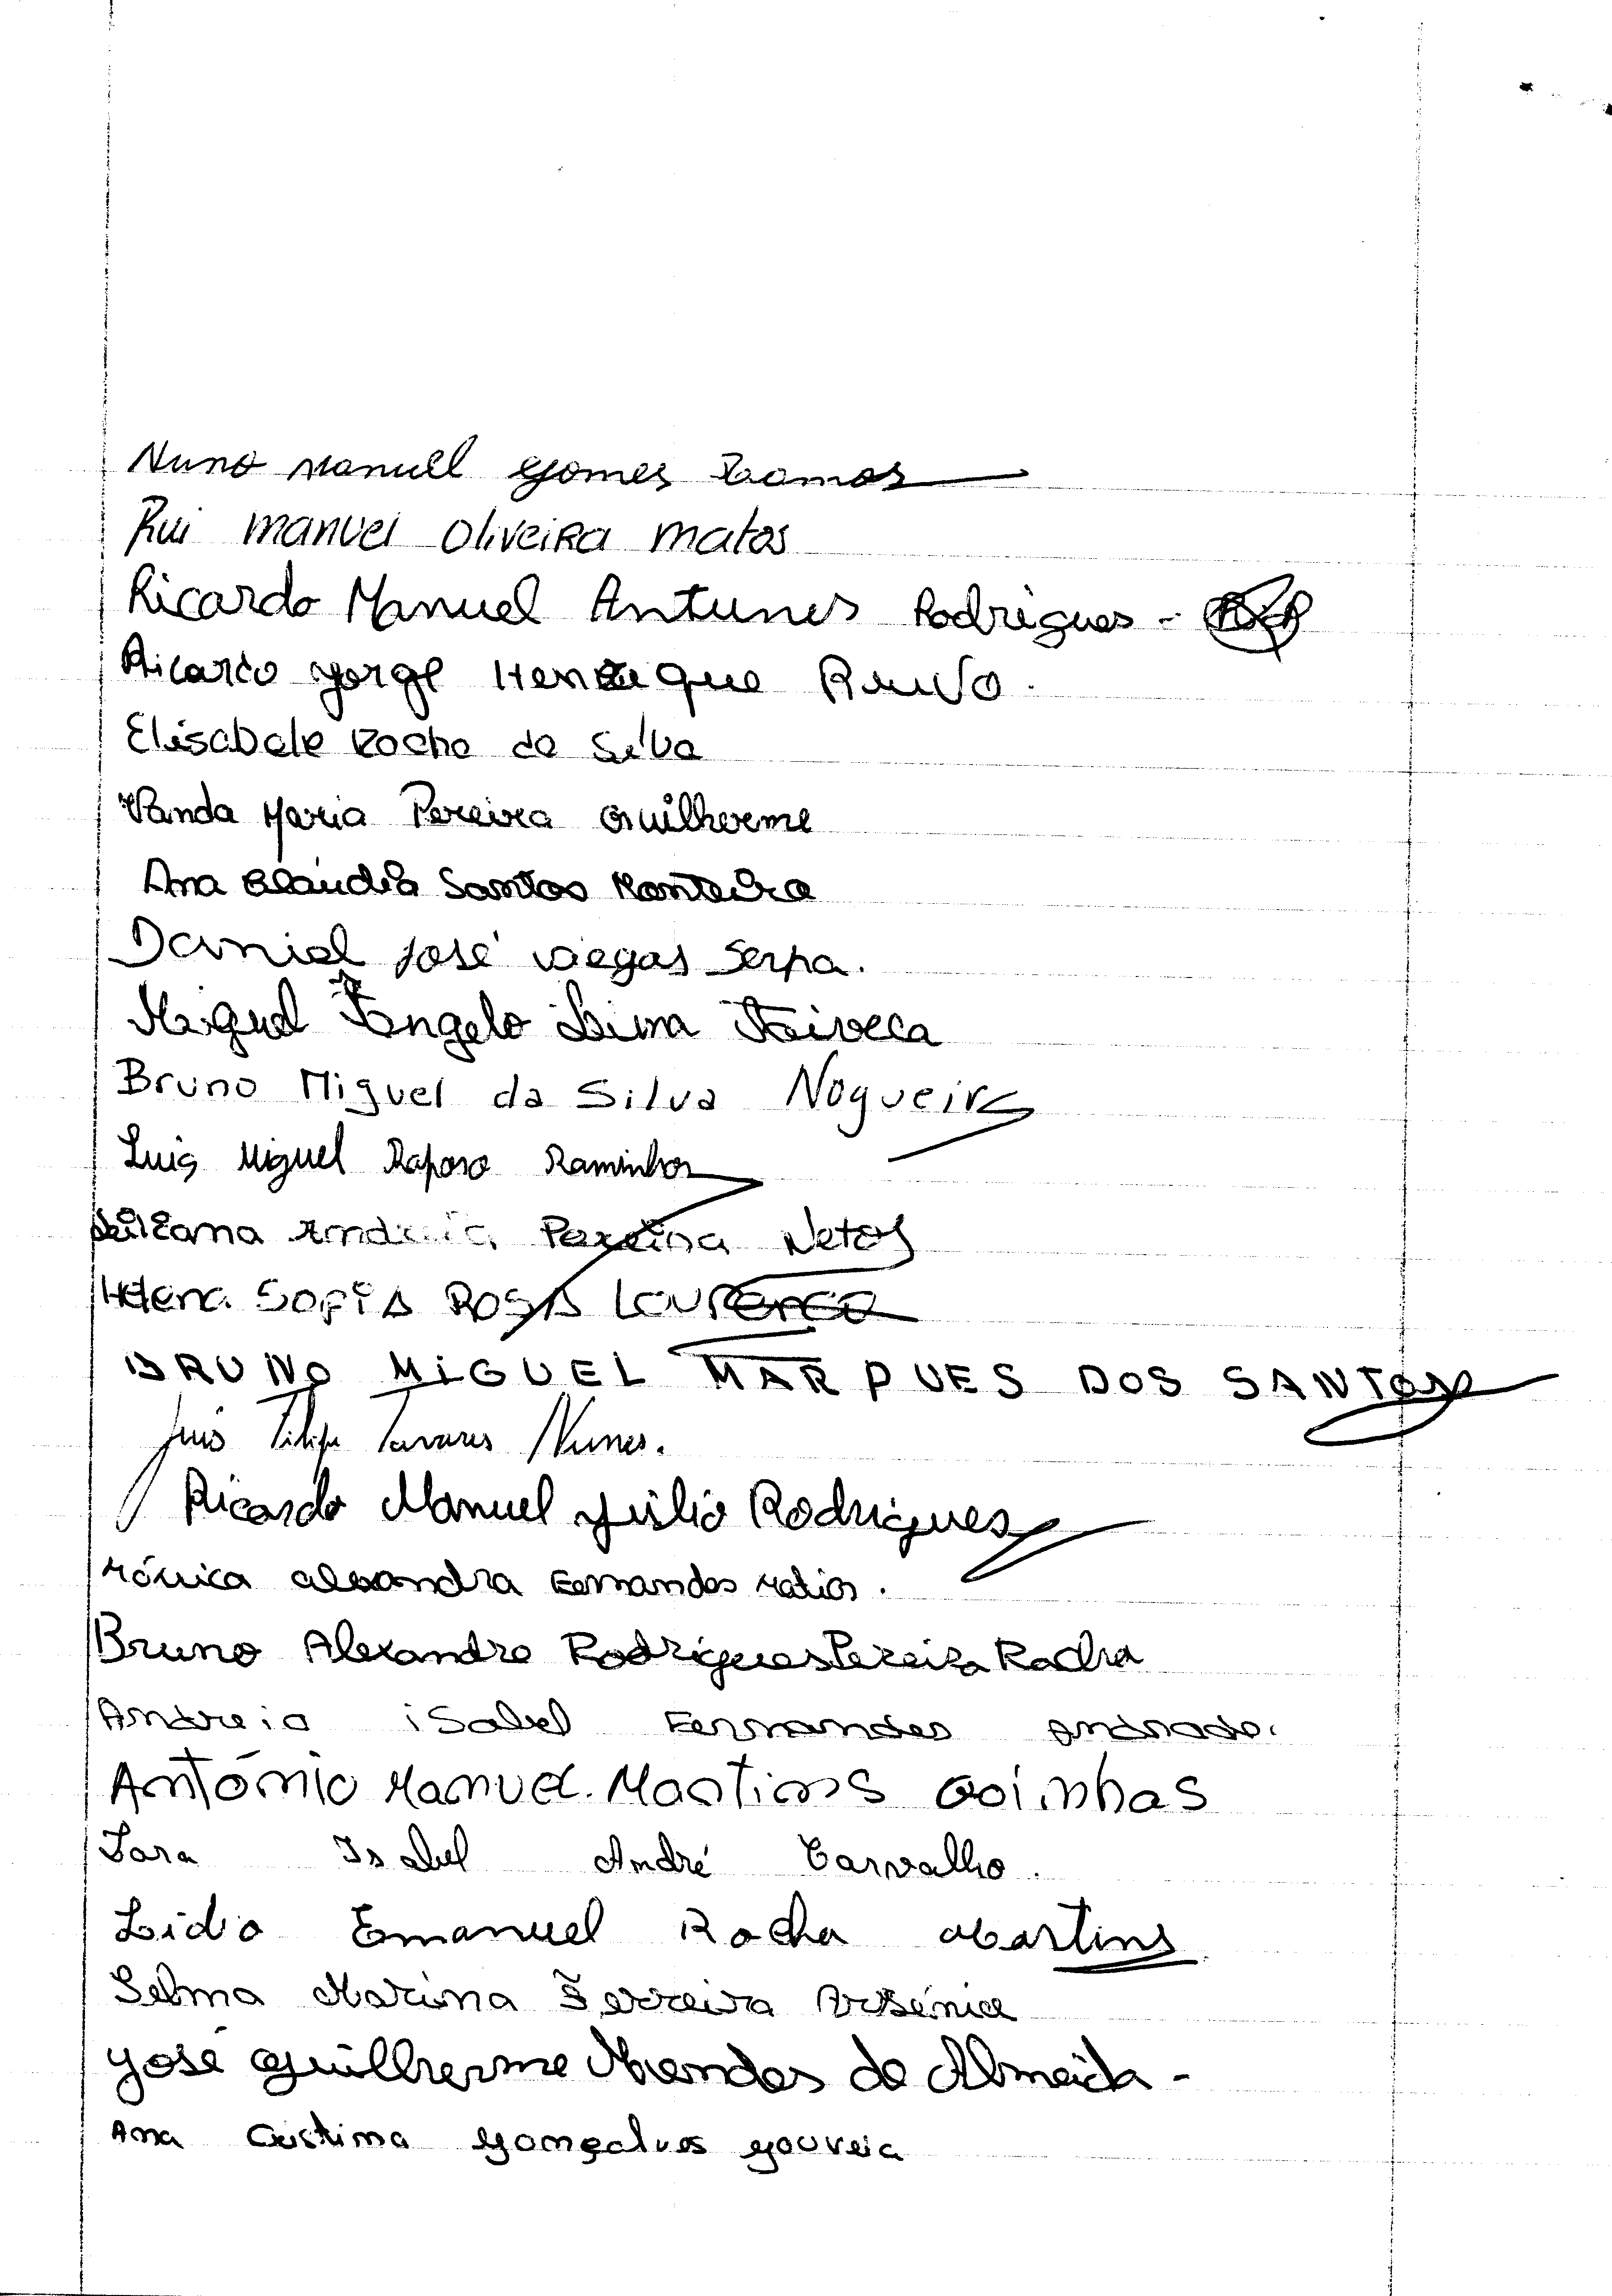 Nuno Manuel Gomes Ramos
Rui Manuel Oliveira Matos
Ricardo Manuel Antunes Rodrigues -
Ricardo Jorge Henrique Ruivo.
Elisabete Rocha da Silva
Vanda Maria Pereira Guilherme
Ana Claúdia Santos Monteiro
Daniel José Viegas Serpa.
Miguel Ângelo Lima
Bruno Miguel da Silva Nogueira
Luis Miguel Raposo Raminhos
Pereira Neto
Helena Sofia Rosa Lourenço
BRUNO MIGUEL MARQUES DOS SANTOS
Luís Filipe Tavares Nunes.
Ricardo Manuel Júlio Rodrigues
Mónica Alexandra Fernandes Matias.
Bruno Alexandre Rodrigues Pereira Rocha
Andreia Isabel Fernandes Andrade.
António Manuel Martins
Sara Isabel André Carvalho.
Lídio Emanuel Rocha Martins
Selma Marina Ferreira Arsénio
José Guilherme Mendes de Almeida -
Ana Cristina Gonçalves Gouveia